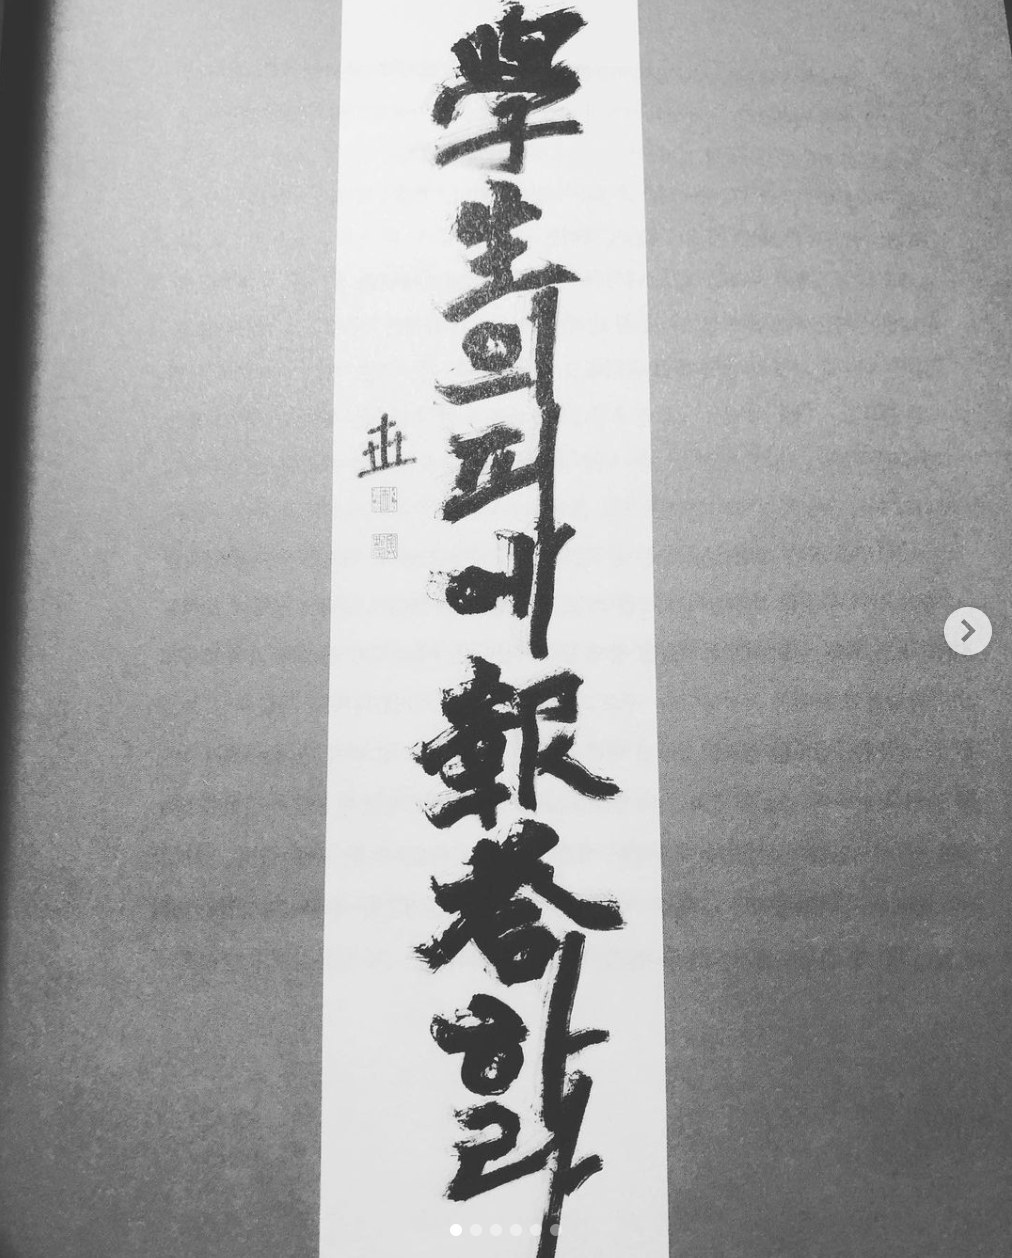 學生의피에報答하라